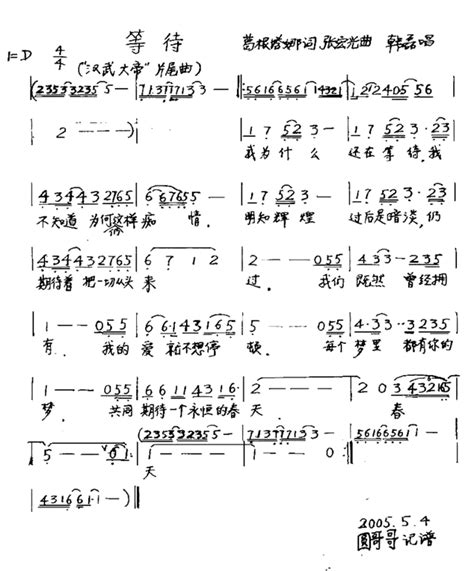 等待
1=D 4/4 葛根塔娜词 张宏光曲 韩磊唱
("汉武大帝"片尾曲)
(2353 3235 5 - | 7137 1713 3 - |: 5616 6561 1 4321 | 1·2 1 2 2405 56
| 2 - - -) | 1 7 52 3 - | 1 7 52 3 · 23
我为什么 还在等待,我
| 434 432765 | 6 6765 5 - | 1 7 52 3 - | 1 7 52 3 · 23
不知道 为何这样痴 情. 明知辉煌 过后是暗淡,仍
你
| 434 432765 | 6 7 1 2 | 2 - - 055 | 4·33 - 235
期待着 把一切从头 来 过. 我们 既然 曾经拥
| 1 - - 055 | 6 6·1 43 165 | 5 - - 055 | 4·33 - - 3235
有. 我的 爱 就不想停 顿. 每个 梦里 都有你的
| 1 - - 055 | 6 6 1 1 4 3 1 6· | 2 - - - | 2 0 3 43216
梦. 共同 期待一个永恒的春 天. 春
(2353 3235 5 - | 7137 1713 3 - | 5616 6561 1 -
| 5 - - 61 | 1 - - - | 1 - - 0 :|
天
| 4316 61·1 - ) ||
2005.5.4
圆哥哥记谱